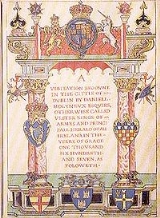 A
VISITATION BEGONNE
IN THE CITTIE OF
DUBLIN BY DANIELL
MOLYNEUX ESQUIRE,
OTHERWISE CALLED
ULSTER KINGE OF
ARMES AND PRINCI
PALL HERALD OF ALL
IRELAND IN THE
YEERES OF GRACE
ONE THOUSAND
SIX HUNDRETH
AND SEVEN, AS
FOLOWETH